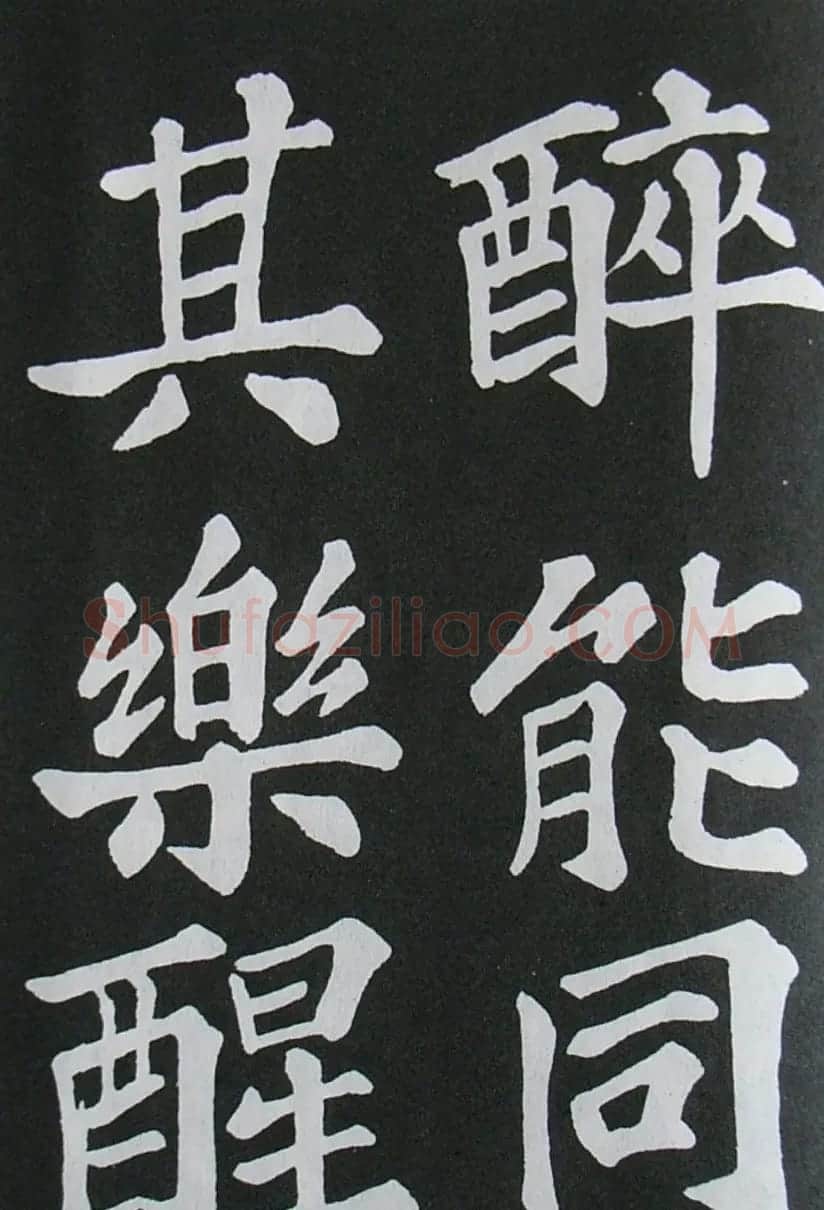 醉能同
其樂醒
Shufaziliao.COM